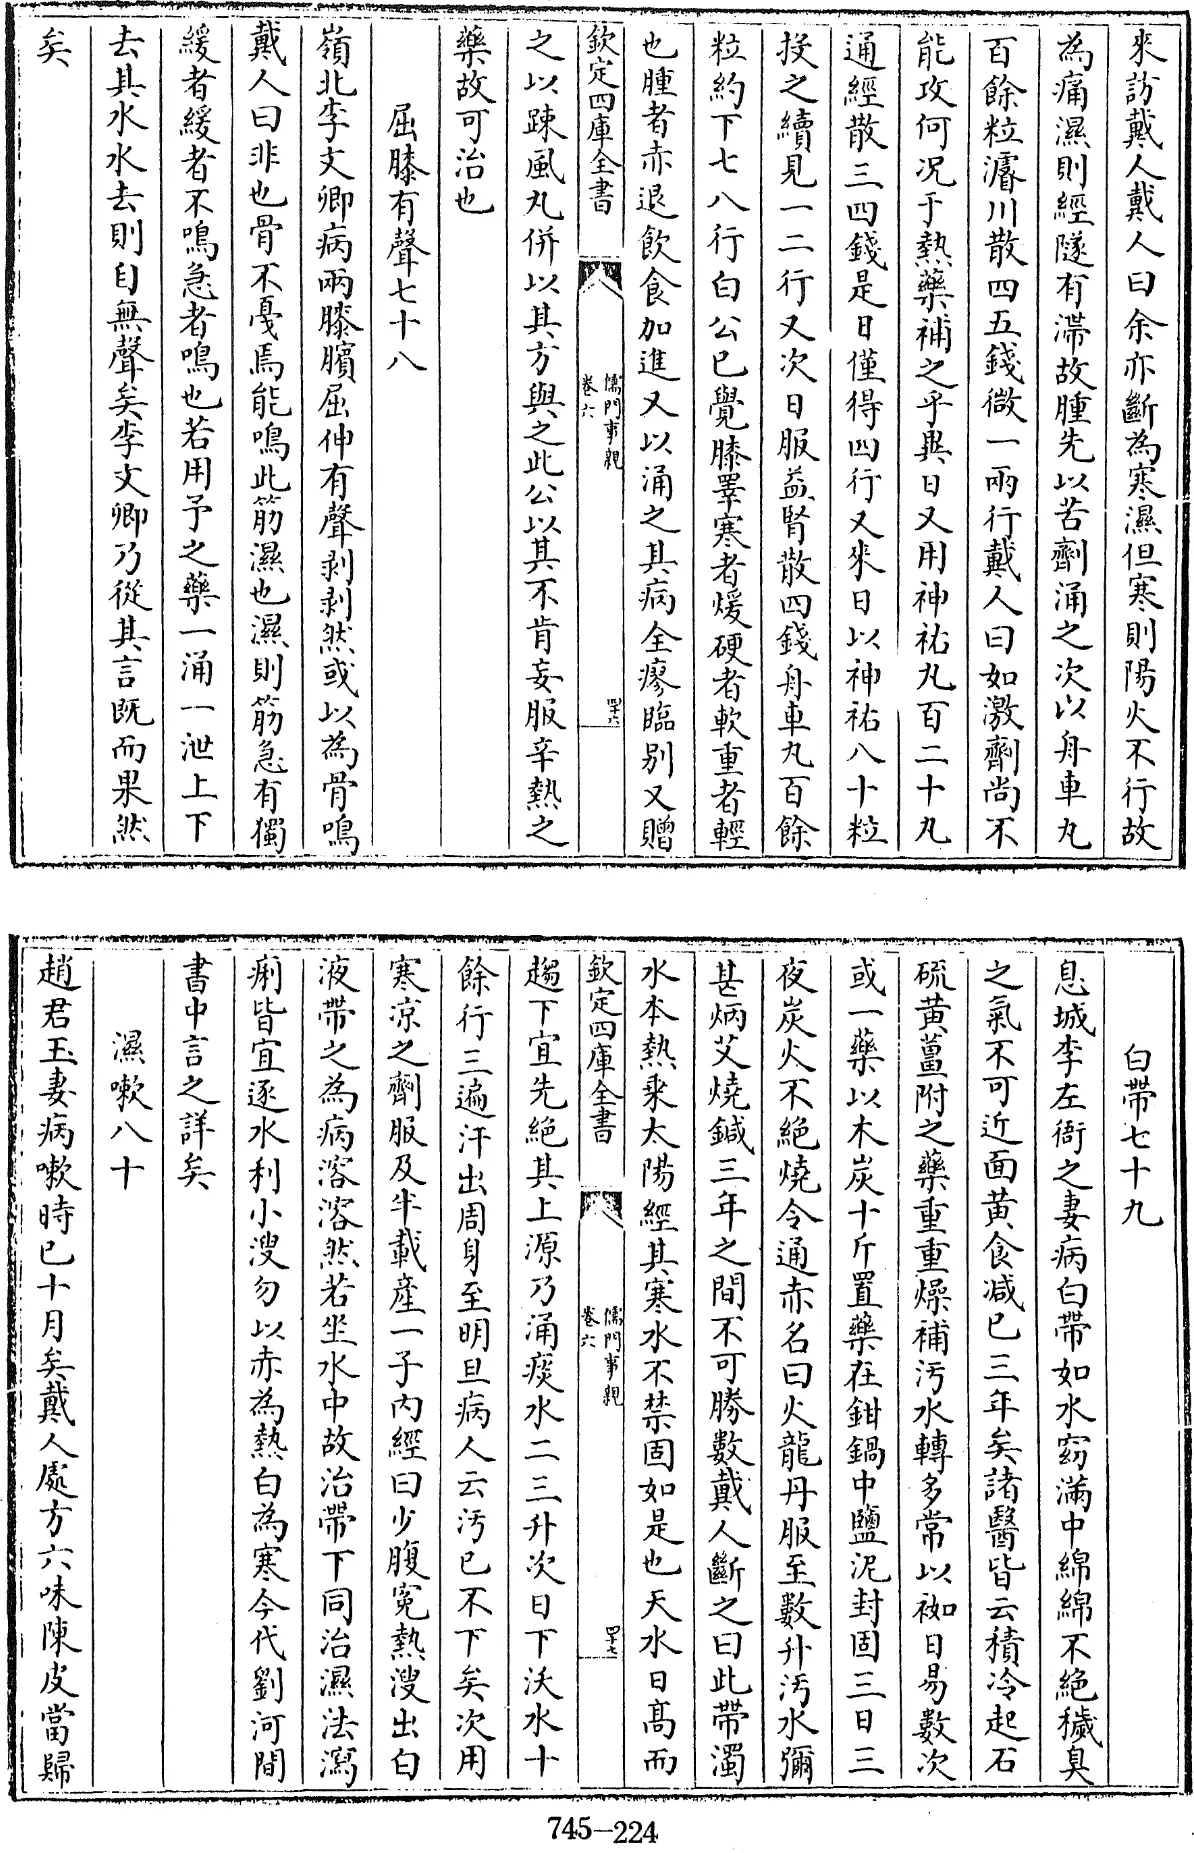 來訪戴人戴人曰余亦斷為寒濕但寒則陽火不行故
為痛濕則經隧有滯故腫先以苦劑涌之次以舟車丸
百餘粒濬川散四五錢微一兩行戴人曰如激劑尚不
能攻何况于熱藥補之乎異日又用神祐丸百二十丸
通經散三四錢是日僅得四行又來日以神祐八十粒
投之續見一二行又次日服益腎散四錢舟車丸百餘
粒約下七八行白公已覺膝睪寒者煖硬者軟重者輕
也腫者亦退飲食加進又以涌之其病全瘳臨別又贈
欽定四庫全書
儒門事親
卷六
四十六
之以踈風丸併以其方與之此公以其不肯妄服辛熱之
藥故可治也
屈膝有聲七十八
嶺北李文卿病兩膝臏屈伸有聲剥剥然或以為骨鳴
戴人曰非也骨不戞焉能鳴此筋濕也濕則筋急有獨
緩者緩者不鳴急者鳴也若用予之藥一涌一泄上下
去其水水去則自無聲矣李文卿乃從其言既而果然
矣
白帶七十九
息城李左衙之妻病白帶如水窈滿中綿綿不絶穢臭
之氣不可近面黄食减已三年矣諸醫皆云積冷起石
硫黄薑附之藥重重燥補汚水轉多常以袽日易數次
或一藥以木炭十斤置藥在鉗鍋中鹽泥封固三日三
夜炭火不絶燒令通赤名曰火龍丹服至數升汚水彌
甚炳艾燒鍼三年之間不可勝數戴人斷之曰此帶濁
水本熱乘太陽經其寒水不禁固如是也天水日高而
欽定四庫全書
儒門事親
卷六
四十七
趨下宜先絶其上源乃涌痰水二三升次日下沃水十
餘行三遍汗出周身至明旦病人云汚已不下矣次用
寒凉之劑服及半載產一子内經曰少腹寃熱溲出白
液帶之為病溶溶然若坐水中故治帶下同治濕法瀉
痢皆宜逐水利小溲勿以赤為熱白為寒今代劉河間
書中言之詳矣
濕嗽八十
趙君玉妻病嗽時已十月矣戴人處方六味陳皮當歸
745-224